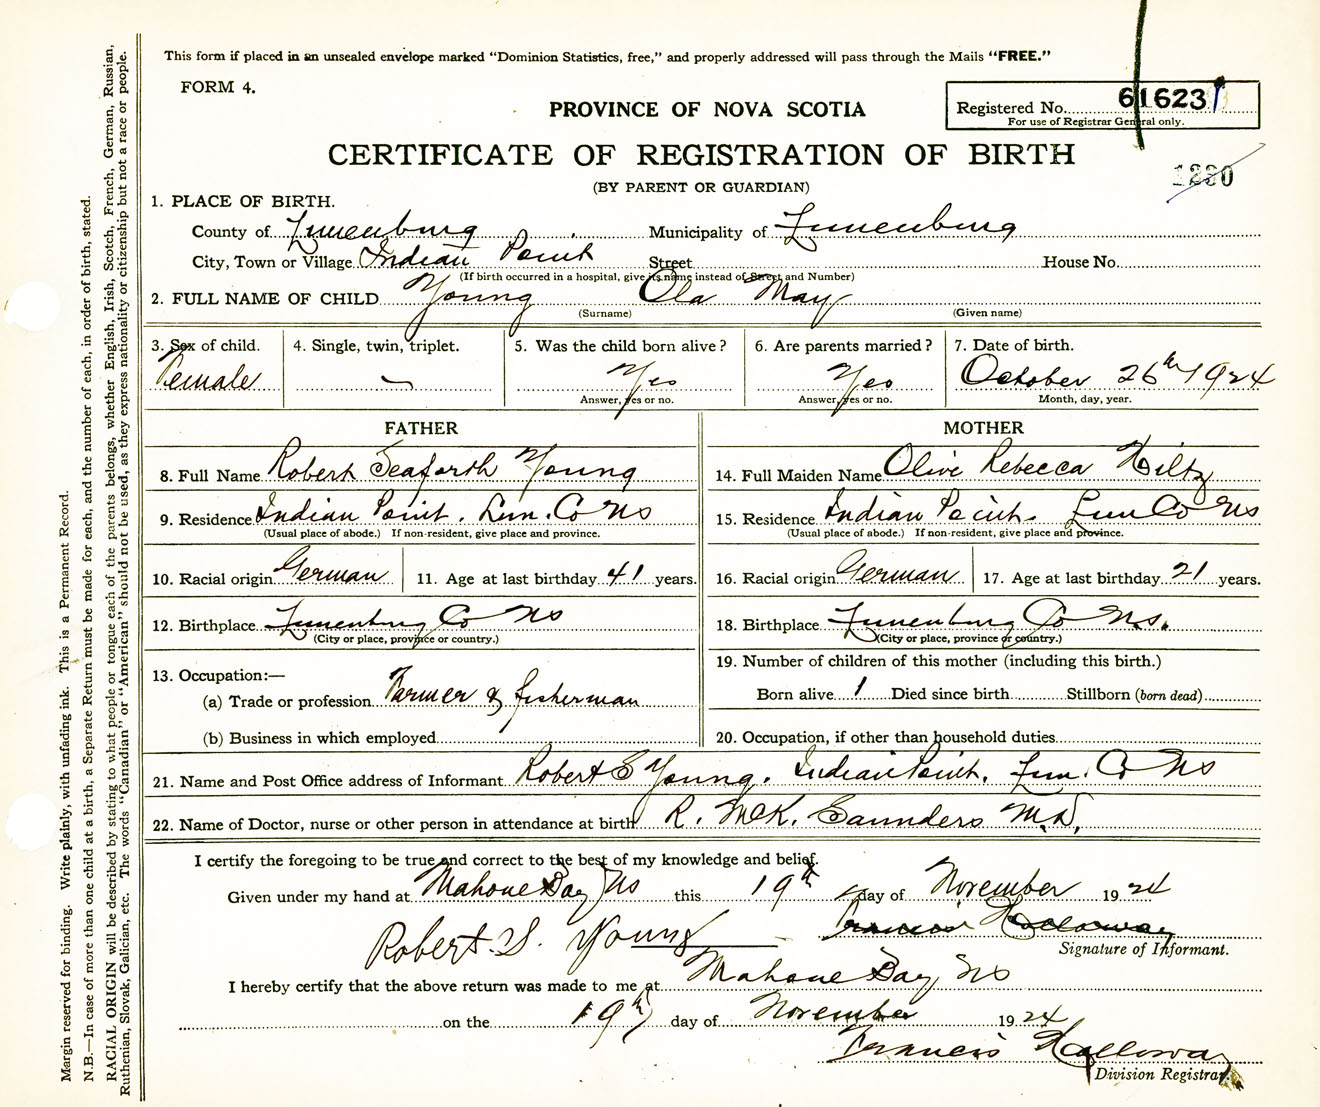 This form if placed in an unsealed envelope marked "Dominion Statistics, free," and properly addressed will pass through the Mails "FREE."
FORM 4.
PROVINCE OF NOVA SCOTIA
Registered No. 61623
For use of Registrar General only.
CERTIFICATE OF REGISTRATION OF BIRTH
1280
(BY PARENT OR GUARDIAN)
1. PLACE OF BIRTH.
County of Lunenburg Municipality of Lunenburg
City, Town or Village Indian Point Street House No.
(If birth occurred in a hospital, give its name instead of Street and Number)
2. FULL NAME OF CHILD Young Ola May
(Surname) (Given name)
3. Sex of child. 4. Single, twin, triplet. 5. Was the child born alive? 6. Are parents married? 7. Date of birth.
Female — Yes Yes October 26th 1924
Answer, yes or no. Answer, yes or no. Month, day, year.
FATHER
8. Full Name Robert Seaforth Young
9. Residence Indian Point. Lun. Co NS
(Usual place of abode.) If non-resident, give place and province.
10. Racial origin German 11. Age at last birthday 41 years.
12. Birthplace Lunenburg Co NS
(City or place, province or country.)
13. Occupation:—
(a) Trade or profession Farmer & fisherman
(b) Business in which employed
MOTHER
14. Full Maiden Name Olive Rebecca Hiltz
15. Residence Indian Point. Lun Co NS
(Usual place of abode.) If non-resident, give place and province.
16. Racial origin German 17. Age at last birthday 21 years.
18. Birthplace Lunenburg Co N.S.
(City or place, province or country.)
19. Number of children of this mother (including this birth.)
Born alive 1 Died since birth Stillborn (born dead)
20. Occupation, if other than household duties
21. Name and Post Office address of Informant Robert S Young. Indian Point. Lun. Co NS
22. Name of Doctor, nurse or other person in attendance at birth R. McK. Saunders M.D.
I certify the foregoing to be true and correct to the best of my knowledge and belief.
Given under my hand at Mahone Bay NS this 19th day of November 1924
Francis Holloway
Robert. S. Young
Signature of Informant.
I hereby certify that the above return was made to me at Mahone Bay NS
on the 19th day of November 1924
Francis Holloway
Division Registrar.
Margin reserved for binding. Write plainly, with unfading ink. This is a Permanent Record.
N.B.—In case of more than one child at a birth, a Separate Return must be made for each, and the number of each, in order of birth, stated.
RACIAL ORIGIN will be described by stating to what people or tongue each of the parents belongs, whether English, Irish, Scotch, French, German, Russian,
Ruthenian, Slovak, Galician, etc. The words "Canadian" or "American" should not be used, as they express nationality or citizenship but not a race or people.